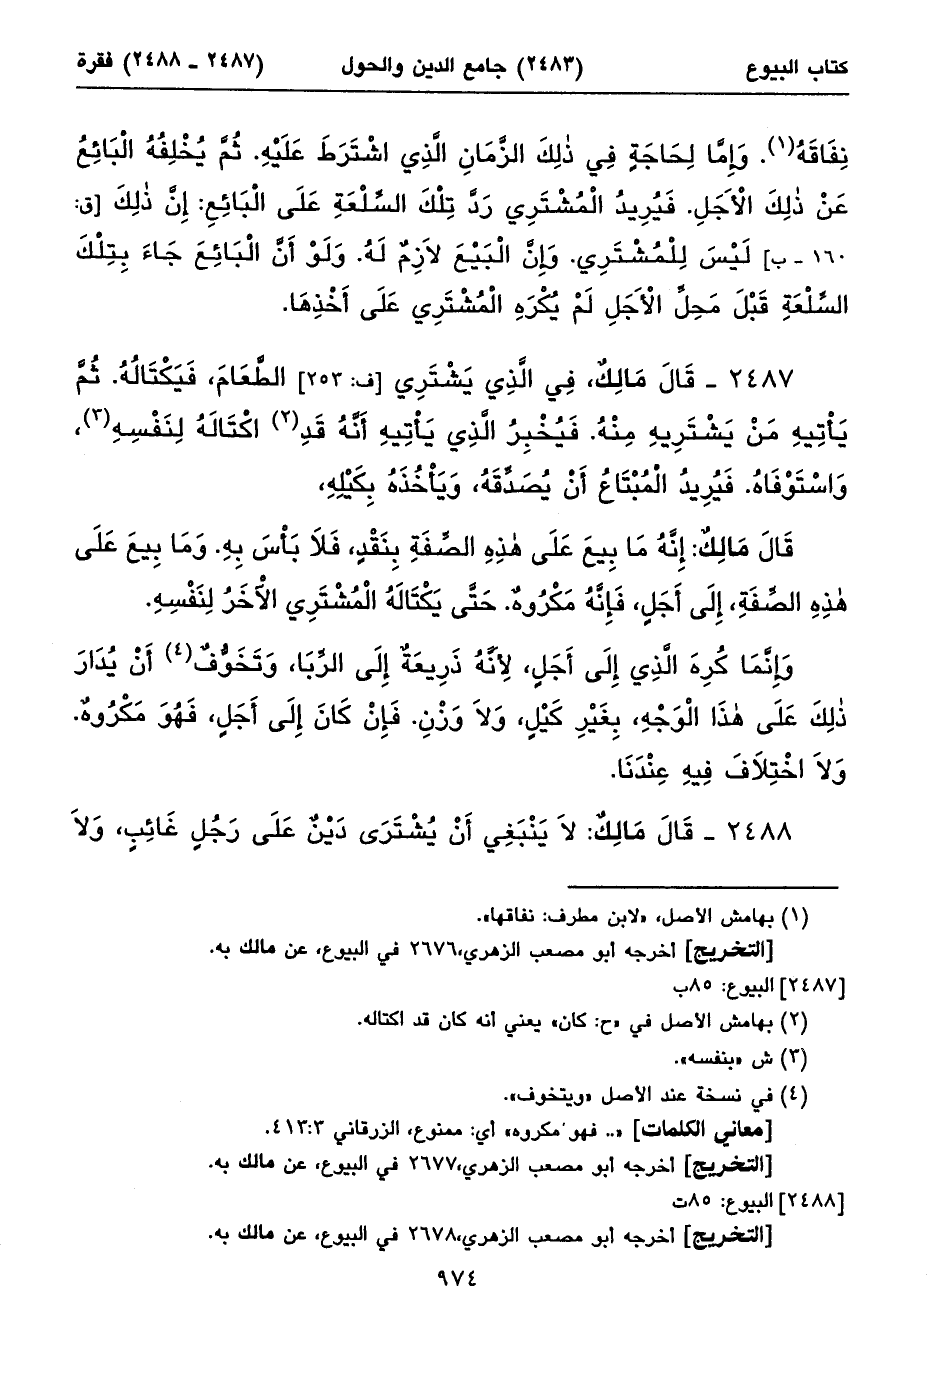 كتاب البيوع (٢٤٨٣) جامع الدين والحول (٢٤٨٧ ـ ٢٤٨٨) فقرة
نِفَاقَهُ(١). وَإِمَّا لِحَاجَةٍ فِي ذٰلِكَ الزَّمَانِ الَّذِي اشْتَرَطَ عَلَيْهِ. ثُمَّ يُخْلِفُهُ الْبَائِعُ
عَنْ ذٰلِكَ الْأَجَلِ. فَيُرِيدُ الْمُشْتَرِي رَدَّ تِلْكَ السِّلْعَةِ عَلَى الْبَائِعِ: إِنَّ ذٰلِكَ [ق:
١٦٠ ـ ب] لَيْسَ لِلْمُشْتَرِي. وَإِنَّ الْبَيْعَ لَازِمٌ لَهُ. وَلَوْ أَنَّ الْبَائِعَ جَاءَ بِتِلْكَ
السِّلْعَةِ قَبْلَ مَحِلِّ الْأَجَلِ لَمْ يُكْرَهِ الْمُشْتَرِي عَلَى أَخْذِهَا.
٢٤٨٧ ـ قَالَ مَالِكٌ، فِي الَّذِي يَشْتَرِي [ف: ٢٥٣] الطَّعَامَ، فَيَكْتَالُهُ. ثُمَّ
يَأْتِيهِ مَنْ يَشْتَرِيهِ مِنْهُ. فَيُخْبِرُ الَّذِي يَأْتِيهِ أَنَّهُ قَدِ(٢) اكْتَالَهُ لِنَفْسِهِ(٣)،
وَاسْتَوْفَاهُ. فَيُرِيدُ الْمُبْتَاعُ أَنْ يُصَدِّقَهُ، وَيَأْخُذَهُ بِكَيْلِهِ،
قَالَ مَالِكٌ: إِنَّهُ مَا بِيعَ عَلَى هٰذِهِ الصِّفَةِ بِنَقْدٍ، فَلَا بَأْسَ بِهِ. وَمَا بِيعَ عَلَى
هٰذِهِ الصِّفَةِ، إِلَى أَجَلٍ، فَإِنَّهُ مَكْرُوهٌ. حَتَّى يَكْتَالَهُ الْمُشْتَرِي الْآخَرُ لِنَفْسِهِ.
وَإِنَّمَا كُرِهَ الَّذِي إِلَى أَجَلٍ، لِأَنَّهُ ذَرِيعَةٌ إِلَى الرِّبَا، وَتَخَوُّفٌ(٤) أَنْ يُدَارَ
ذٰلِكَ عَلَى هٰذَا الْوَجْهِ، بِغَيْرِ كَيْلٍ، وَلَا وَزْنٍ. فَإِنْ كَانَ إِلَى أَجَلٍ، فَهُوَ مَكْرُوهٌ.
وَلَا اخْتِلَافَ فِيهِ عِنْدَنَا.
٢٤٨٨ ـ قَالَ مَالِكٌ: لَا يَنْبَغِي أَنْ يُشْتَرَى دَيْنٌ عَلَى رَجُلٍ غَائِبٍ، وَلَا
(١) بهامش الأصل، «لابن مطرف: نفاقها».
[التخريج] أخرجه أبو مصعب الزهري،٢٦٧٦ في البيوع، عن مالك به.
[٢٤٨٧] البيوع: ٨٥ب
(٢) بهامش الأصل في «ح: كان» يعني أنه كان قد اكتاله.
(٣) ش «بنفسه».
(٤) في نسخة عند الأصل «ويتخوف».
[معاني الكلمات] «.. فهو مكروه» أي: ممنوع، الزرقاني ٤١٣:٣.
[التخريج] أخرجه أبو مصعب الزهري،٢٦٧٧ في البيوع، عن مالك به.
[٢٤٨٨] البيوع: ٨٥ت
[التخريج] أخرجه أبو مصعب الزهري،٢٦٧٨ في البيوع، عن مالك به.
٩٧٤